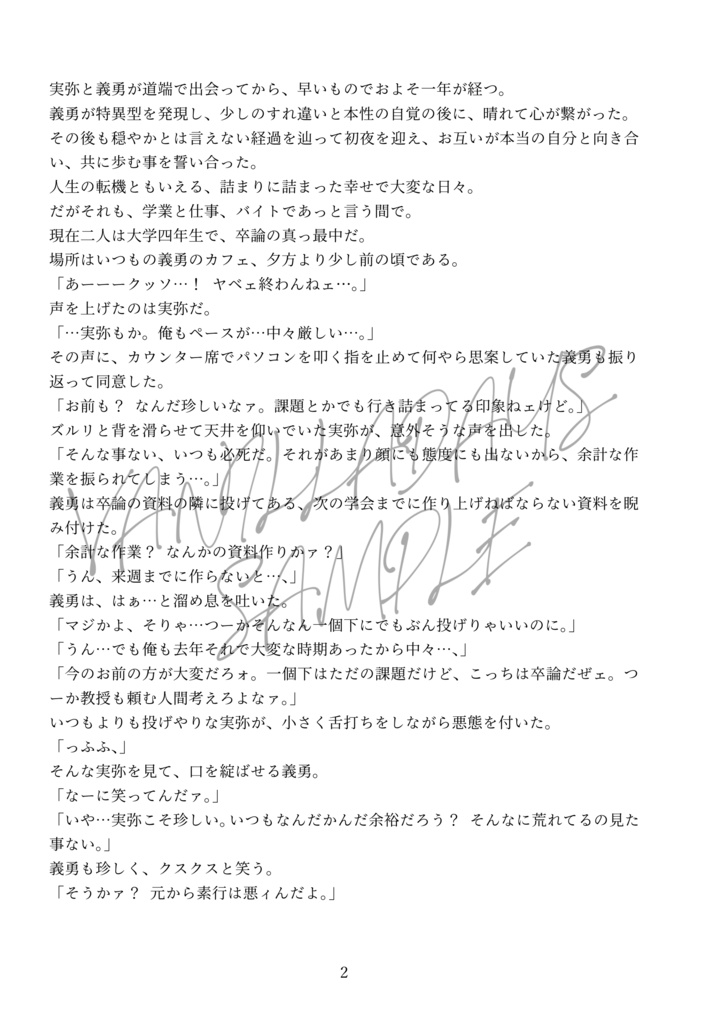 実弥と義勇が道端で出会ってから、早いものでおよそ一年が経つ。
義勇が特異型を発現し、少しのすれ違いと本性の自覚の後に、晴れて心が繋がった。
その後も穏やかとは言えない経過を辿って初夜を迎え、お互いが本当の自分と向き合
い、共に歩む事を誓い合った。
人生の転機ともいえる、詰まりに詰まった幸せで大変な日々。
だがそれも、学業と仕事、バイトであっと言う間で。
現在二人は大学四年生で、卒論の真っ最中だ。
場所はいつもの義勇のカフェ、夕方より少し前の頃である。
「あーーークッソ…！ ヤベェ終わんねェ…。」
声を上げたのは実弥だ。
「…実弥もか。俺もペースが…中々厳しい…。」
その声に、カウンター席でパソコンを叩く指を止めて何やら思案していた義勇も振り
返って同意した。
「お前も？ なんだ珍しいなァ。課題とかでも行き詰まってる印象ねェけど。」
ズルリと背を滑らせて天井を仰いでいた実弥が、意外そうな声を出した。
「そんな事ない、いつも必死だ。それがあまり顔にも態度にも出ないから、余計な作
業を振られてしまう…。」
義勇は卒論の資料の隣に投げてある、次の学会までに作り上げねばならない資料を睨
み付けた。
「余計な作業？ なんかの資料作りかァ？」
「うん、来週までに作らないと…、」
義勇は、はぁ…と溜め息を吐いた。
「マジかよ、そりゃ…つーかそんなん一個下にでもぶん投げりゃいいのに。」
「うん…でも俺も去年それで大変な時期あったから中々…、」
「今のお前の方が大変だろォ。一個下はただの課題だけど、こっちは卒論だぜェ。つ
ーか教授も頼む人間考えろよなァ。」
いつもよりも投げやりな実弥が、小さく舌打ちをしながら悪態を付いた。
「っふふ、」
そんな実弥を見て、口を綻ばせる義勇。
「なーに笑ってんだァ。」
「いや…実弥こそ珍しい。いつもなんだかんだ余裕だろう？ そんなに荒れてるの見た
事ない。」
義勇も珍しく、クスクスと笑う。
「そうかァ？ 元から素行は悪ィんだよ。」
SAMPLE
2